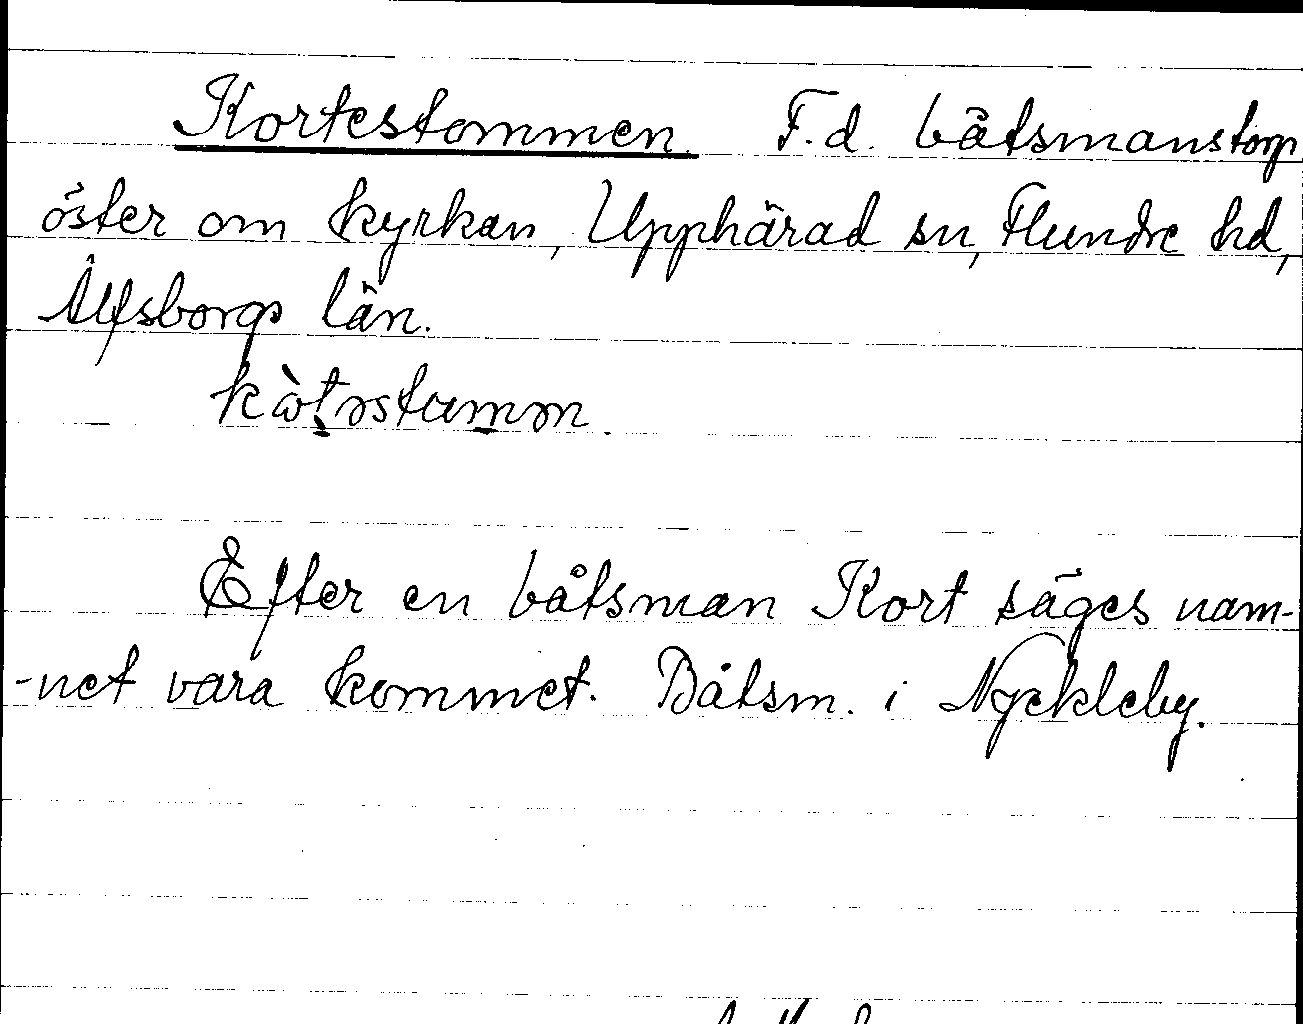 Kortestommen. F.d. båtsmanstorp
öster om kyrkan, Upphärad sn, Flundre hd,
Älfsborgs län.

Efter en båtsman Kort säges nam-
-net vara kommet. Båtsm. i Nyckleby.